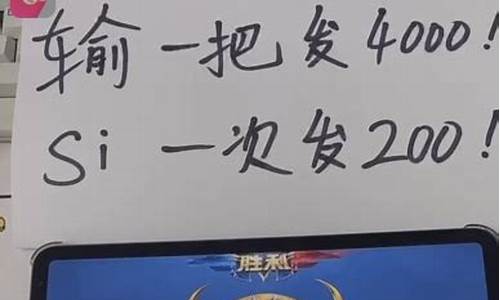 输一把发4000!
Si一次发200!
胜利